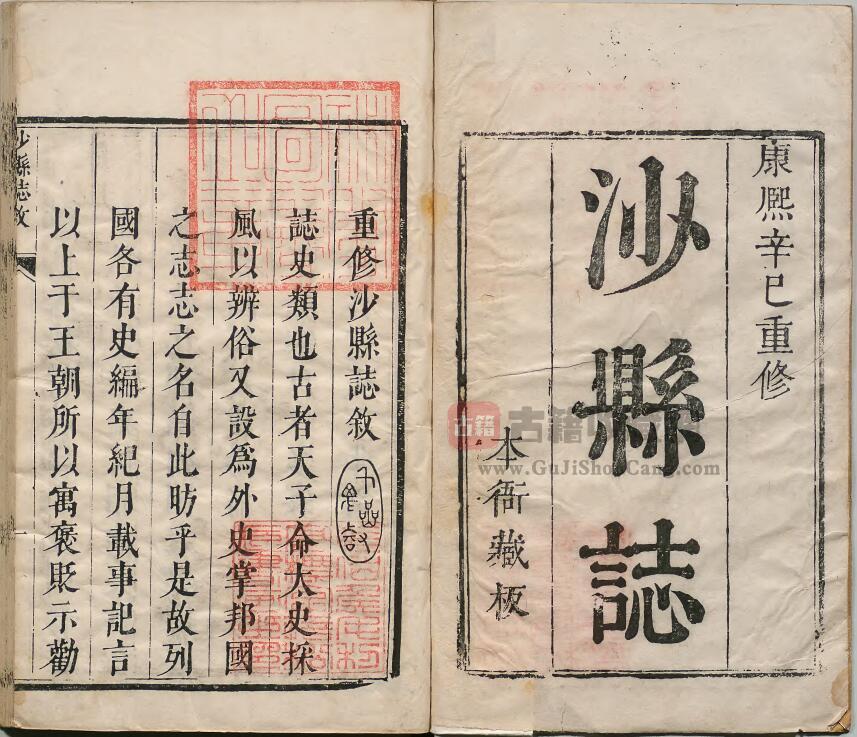 康熙辛巳重修
沙縣誌
本衙藏板
重修沙縣誌敘
誌史類也古者天子命太史採
風以辨俗又設爲外史掌邦國
之志志之名自此昉乎是故列
國各有史編年紀月載事記言
以上于王朝所以寓褒貶示勸
沙縣志敘
古籍
www.GuJiShuCang.com